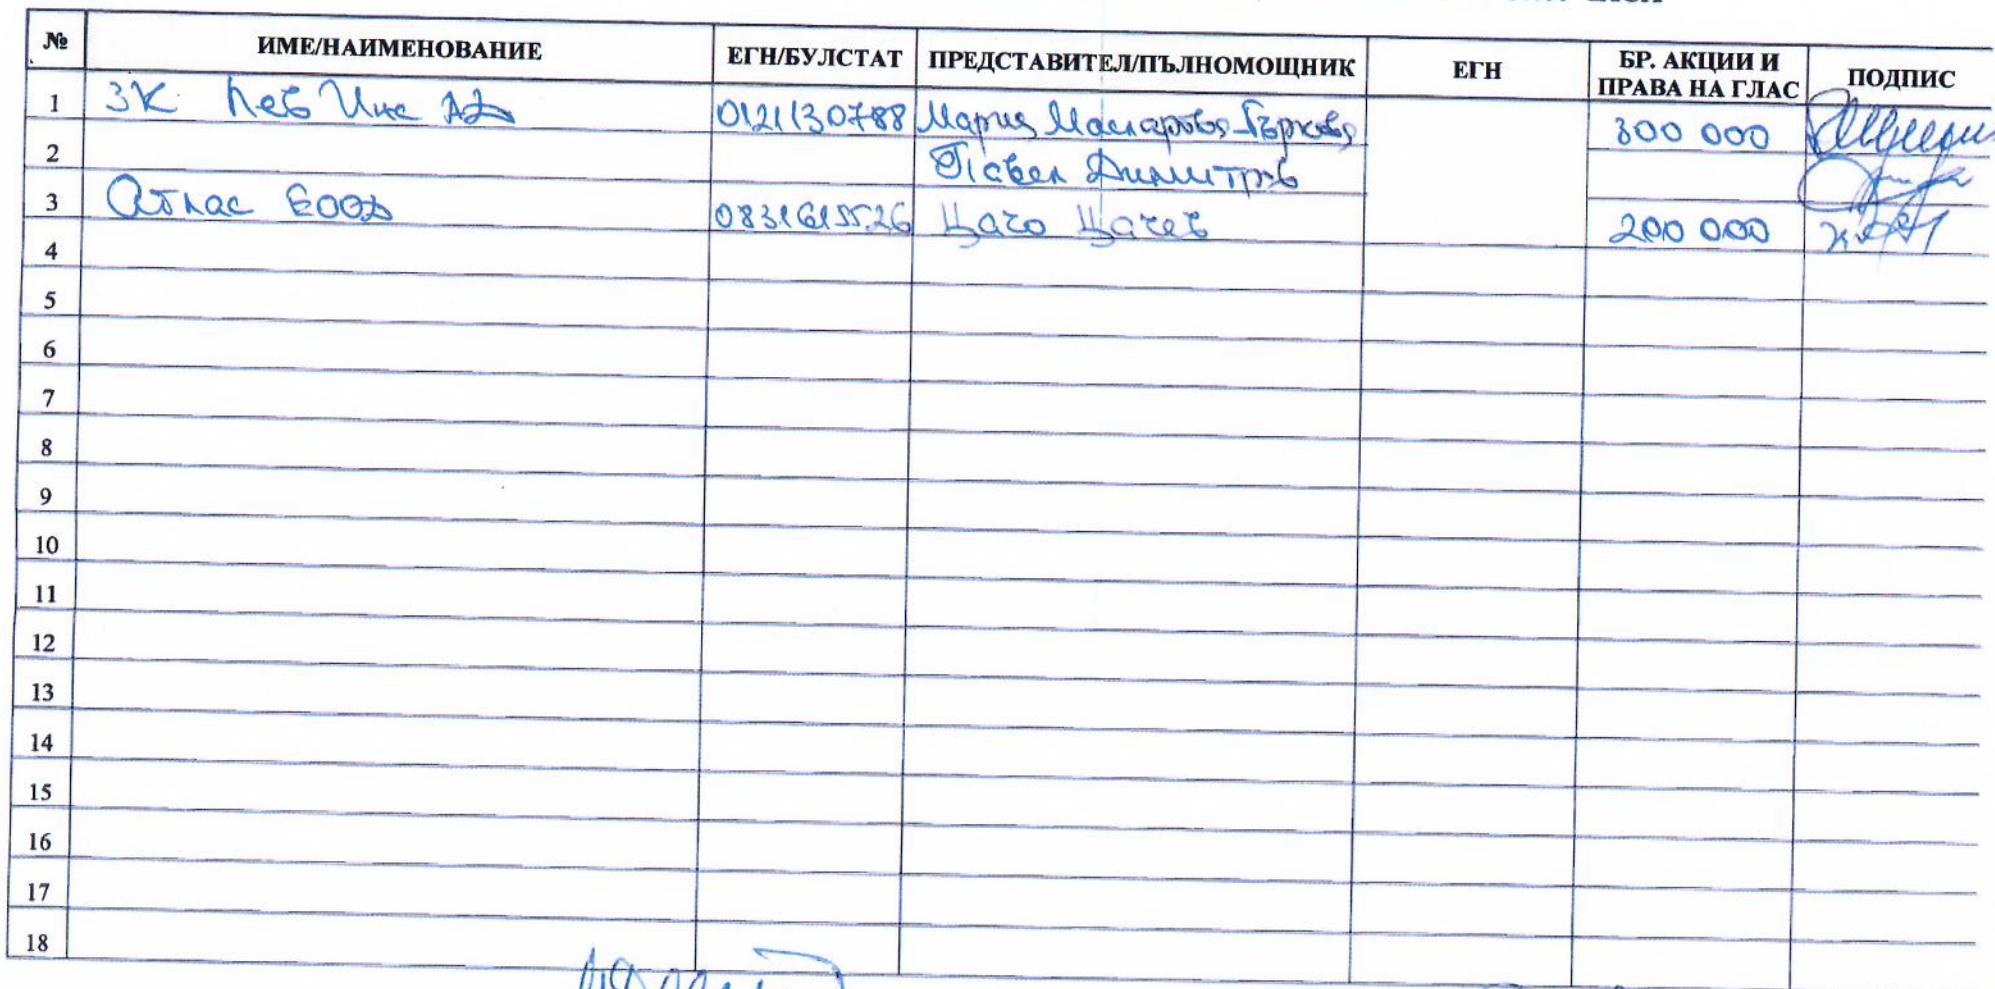 № ИМЕ/НАИМЕНОВАНИЕ ЕГН/БУЛСТАТ ПРЕДСТАВИТЕЛ/ПЪЛНОМОЩНИК ЕГН БР. АКЦИИ И ПРАВА НА ГЛАС ПОДПИС
1 ЗК Лев Инс АД 0121130788 Мария Масларова-Гъркова 300 000
2 Павел Димитров
3 Атлас ЕООД 0831615526 Цачо Цачев 200 000
4
5
6
7
8
9
10
11
12
13
14
15
16
17
18